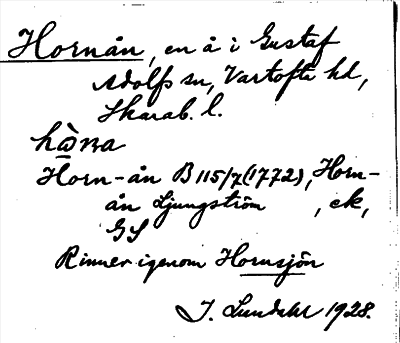 Hornån, en å i Gustaf
Adolfs sn, Vartofta hd,
Skarab. l.
Horn-ån B 115/7 (1772), Horn-
ån Ljungström, ek,
GS
Rinner igenom Hornsjön
J. Lundahl 1928.